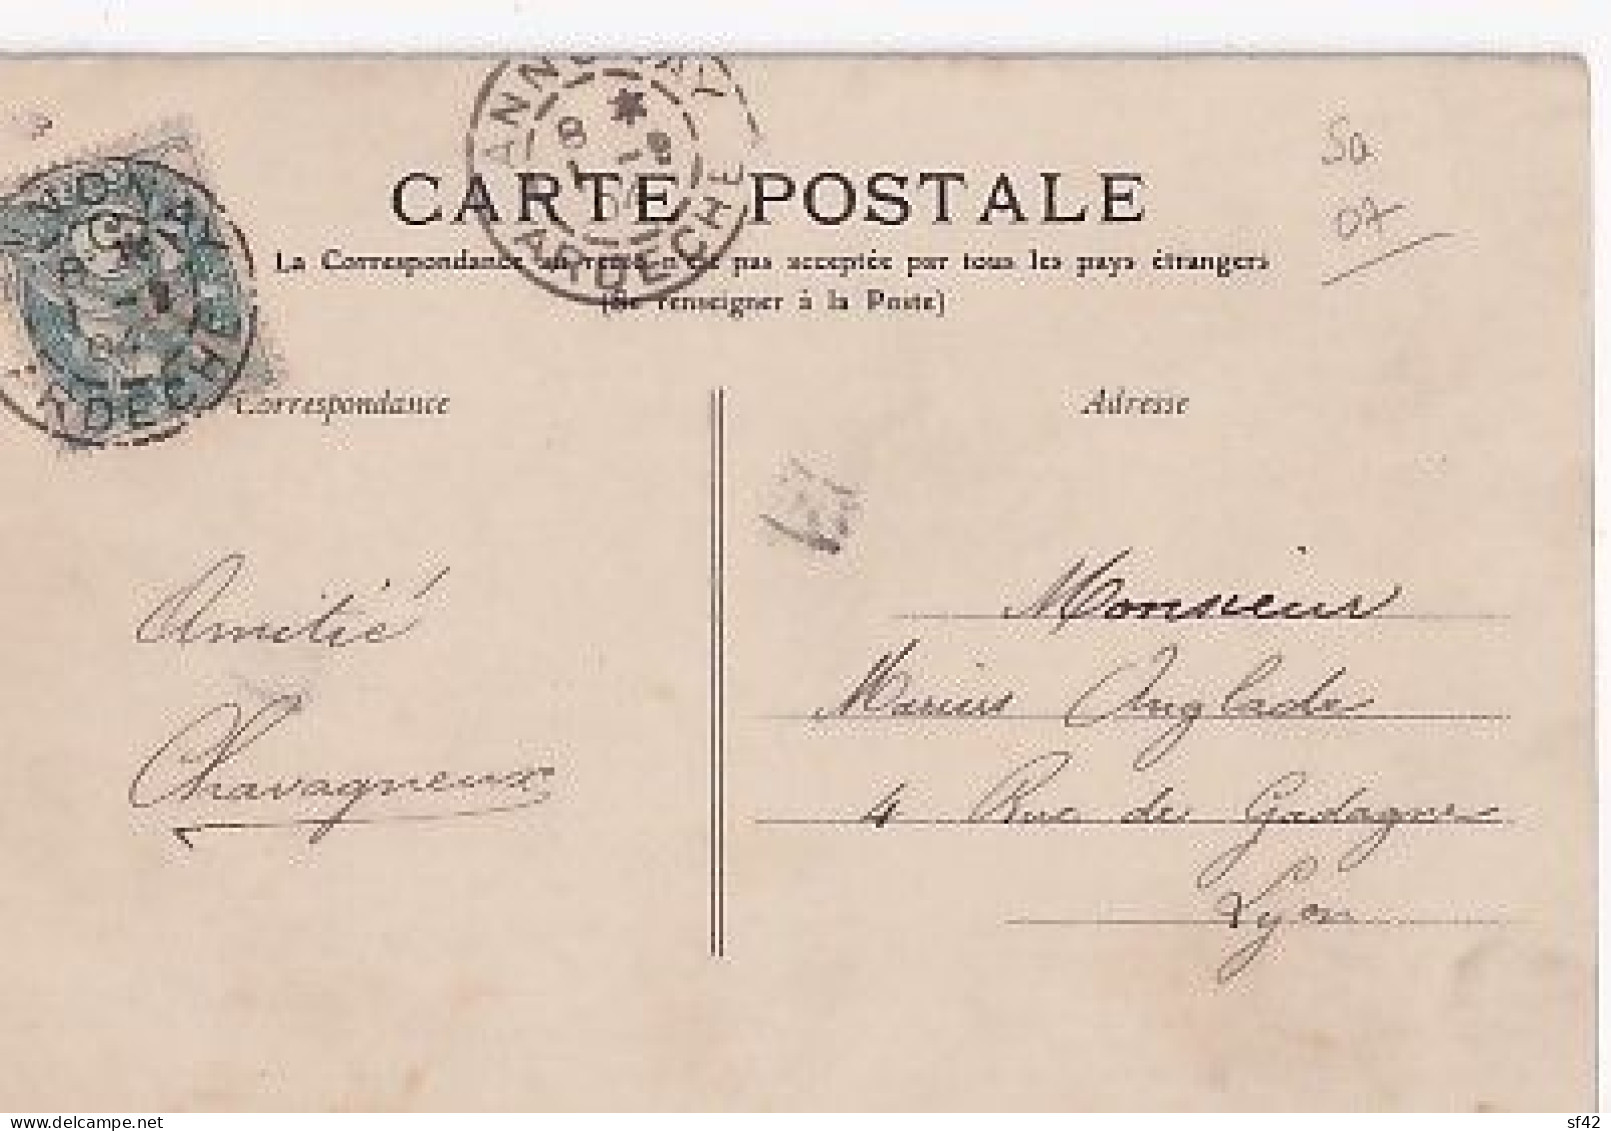 ANNONAY
ARDECHE
CARTE POSTALE
La Correspondance au verso n'est pas acceptée par tous les pays étrangers
(Se renseigner à la Poste)
5a
07
ARDECHE
Correspondance
Adresse
Amitié
Chavagneux
Monsieur
Marius Anglade
4 Rue de Gadagne
Lyon
delcampe.net
sf42